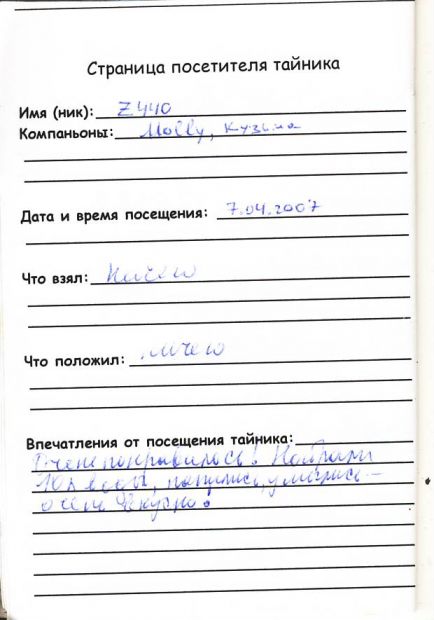 Страница посетителя тайника
Имя (ник): Z440
Компаньоны: Molly, Кузьма
Дата и время посещения: 7.04.2007
Что взял: Ничего
Что положил: ничего
Впечатления от посещения тайника:
Очень понравилось! Набрали
10л воды, напились, умылись –
очень вкусно!